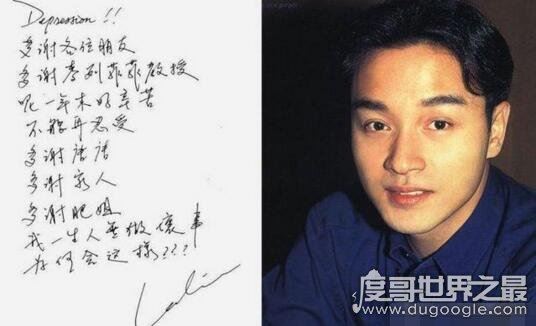 Depression!!
多谢各位朋友
多谢李列菲菲教授
呢一年来好辛苦
不能再忍受
多谢唐唐
多谢家人
多谢肥姐
我一生人無做壞事
为何会这樣???
Leslie
度哥世界之最
www.dugoogle.com